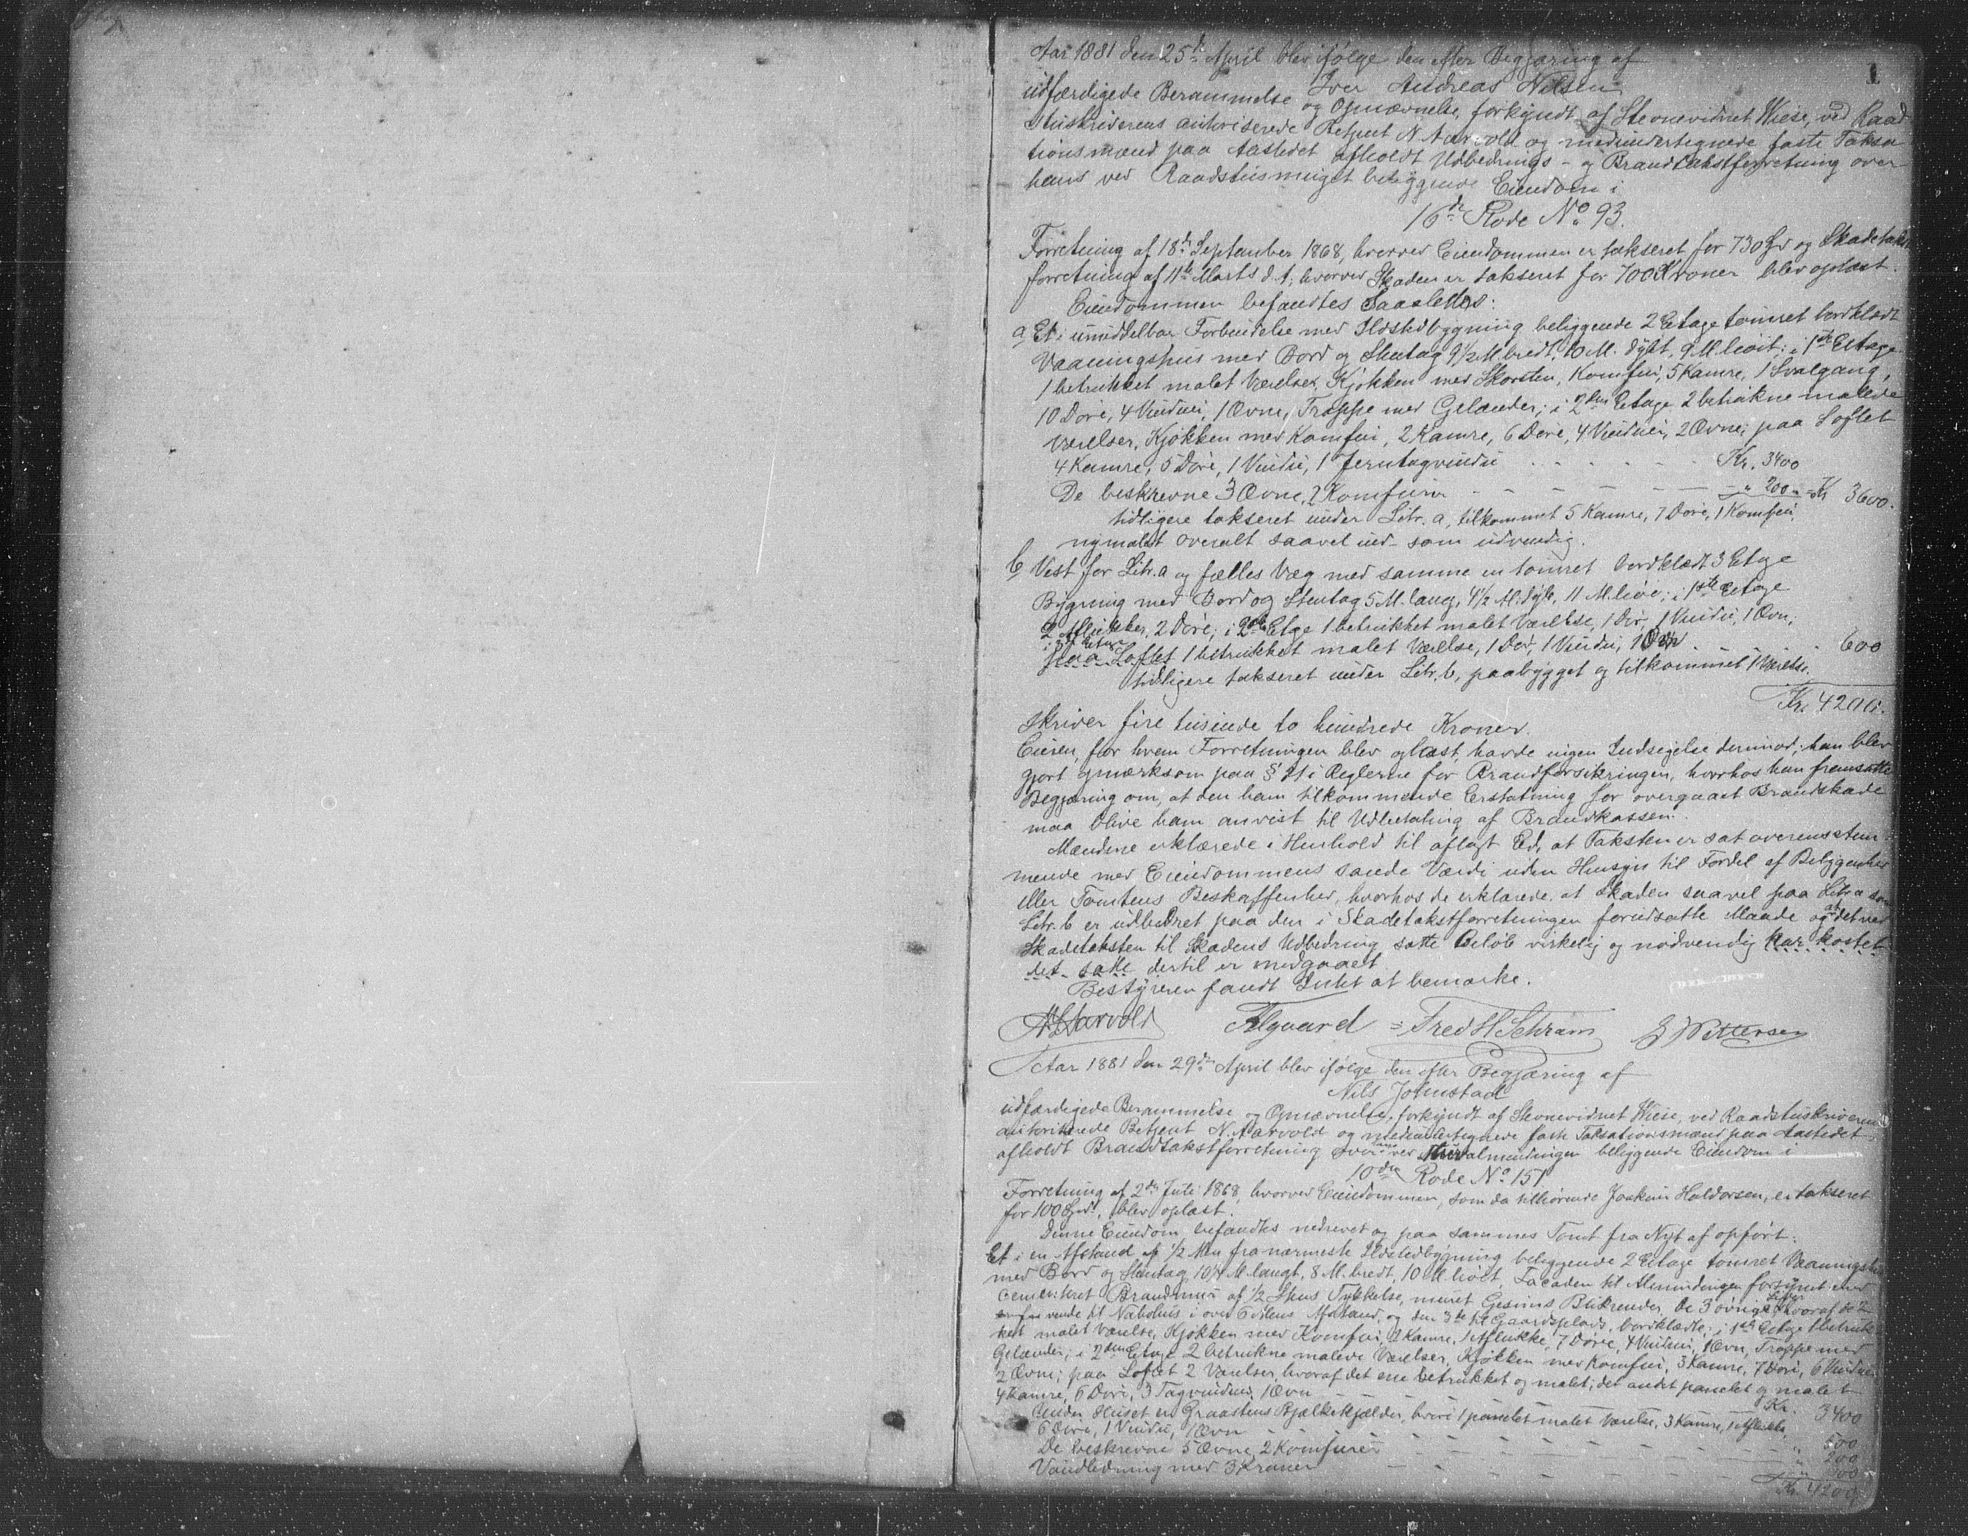 1
Aar 1881 den 25de April blev ifølge den efter Begjæring af
Iver Andreas Nilsen
udfærdigede Berammelse og Opnævnelse, forkyndt af Stevnevidnet Wiese, ved Raad
stuskriverens autoriserede Betjent N. Aarvold og medundertegnede faste Taksa
tionsmænd paa Aastedet afholdt Udbedrings- og Brandtakstforretning over
hans ved Raadstusmuget beliggende Eiendom i
16de Rode No. 93.
Forretning af 18de September 1868, hvorved Eiendommen er takseret for 730 Spd og Skadetakst
forretning af 11te Marts d. A., hvorved Skaden er takseret for 700 Kroner blev oplæst.
Eiendommen befandtes saaledes:
a Et i umiddelbar Forbindelse med Ildstedbygning beliggende 2 Etage tømret bordklædt
Vaaningshus med Bord og Stentag 9 1/2 M. bredt, 10 M. dybt, 9 M. høit; i 1ste Etage
1 betrukket malet Værelse, Kjøkken med Skorsten, Komfui, 5 Kamre, 1 Svalgang,
10 Døre, 4 Vinduer, 1 Ovn, Trappe med Gelænder; i 2den Etage 2 betrukne malede
Værelser, Kjøkken med Komfui, 2 Kamre, 6 Døre, 4 Vinduer, 2 Ovne; paa Loftet
4 Kamre, 5 Døre, 1 Vindu, 1 Jerntagvindu Kr. 3400
De beskrevne 3 Ovne, 2 Komfurer " 200 = Kr 3600.
tidligere takseret under Litr. a, tilkommet 5 Kamre, 7 Døre, 1 Komfui,
nymalet overalt saavel ind- som udvendig.
b Vest for Litr. a og fælles Væg med samme en tømret bordklædt 3 Etage
Bygning med Bord og Stentag 5 M. lang, 4 1/2 M. dyb, 11 M. høi; i 1ste Etage
2 Aflukker, 2 Døre; i 2den Etage 1 betrukket malet Værelse, 1 Dør, 1 Vindu, 1 Ovn;
i 3die Etage
paa Loftet 1 betrukket malet Værelse, 1 Dør, 1 Vindu, 1 Ovn 600
tidligere takseret under Litr. b, paabygget og tilkommet 1 Værelse.
Kr. 4200.
Skriver fire tusinde to hundrede Kroner.
Eieren, for hvem Forretningen blev oplæst, havde ingen Indsigelse derimod; han blev
gjort opmærksom paa § 21 i Reglerne for Brandforsikringen, hvorhos han fremsatte
Begjæring om, at den ham tilkommende Erstatning for overgaaet Brandskade
maa blive ham anvist til Udbetaling af Brandkassen.
Mændene erklærede i Henhold til aflagt Ed, at Taksten er sat overensstem
mende med Eiendommens sande Værdi uden Hensyn til Fordel af Beliggenhed
eller Tomtens Beskaffenhed, hvorhos de erklærede, at Skaden saavel paa Litr. a som
Litr. b er udbedret paa den i Skadetakstforretningen forudsatte Maade og at det ved
Skadetaksten til Skadens Udbedring satte Beløb virkelig og nødvendig har kostet
det satte dertil er medgaaet
Bestyreren fandt Intet at bemærke.
N. Aarvold Fred H Schram
Aar 1881 den 29de April blev ifølge den efter Begjæring af
Nils Jolmstad
udfærdigede Berammelse og Opnævnelse, forkyndt af Stevnevidnet Wiese, ved Raadstuskriverens
autoriserede Betjent N. Aarvold og medundertegnede faste Taksationsmænd paa Aastedet
afholdt Brandtakstforretning over hans ved almendingen beliggende Eiendom i
10de Rode No. 151
Forretning af 2den Juli 1868, hvorved Eiendommen, som da tilhørende Joakim Haldorsen, er takseret
for 100 Spd, blev oplæst.
Denne Eiendom befandtes nedrevet og paa sammes Tomt fra Nyt af opført:
Et i en Afstand af 1/2 Men fra nærmeste Ildstedbygning beliggende 2 Etage tømret Vaaningshus
med Bord og Stentag 10 1/4 M. langt, 8 M. bredt, 10 M. høit, Facaden til Almendingen forsynet med
cementeret Brandmur af 1/2 Stens Tykkelse, muret Gesims, Blikrender, De 3 øvrige Sider hvoraf de 2
vende til Nabohus i over 6 Alens Afstand, og den 3die til Gaardsplads, bordklædte; i 1ste Etage 1 betruk
ket malet Værelse, Kjøkken med Komfui, Kamre, 1 Aflukke, 7 Døre, 4 Vinduer, 1 Ovn, Trappe med
Gelænder; i 2den Etage 2 betrukne malede Værelser, Kjøkken med Komfui, 3 Kamre, 7 Døre, 6 Vinduer
2 Ovne; paa Loftet 2 Værelser, hvoraf det ene betrukket og malet; det andet panelet og malet
4 Kamre, 6 Døre, 3 Tagvinduer, 1 Ovn Kr. 3400
Under Huset er Graastens Bjælkekjælder, hvori 1 panelet malet Værelse, 3 Kamre, 1 Aflukke,
6 Døre, 1 Vindu, 1 Ovn " 500
De beskrevne 5 Ovne, 2 Komfurer " 200
Vandledning med 3 Kraner " 100
Kr. 4200